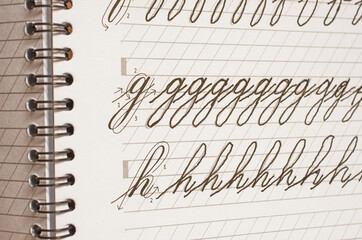 g gggggggggg
h hhhhhhhh